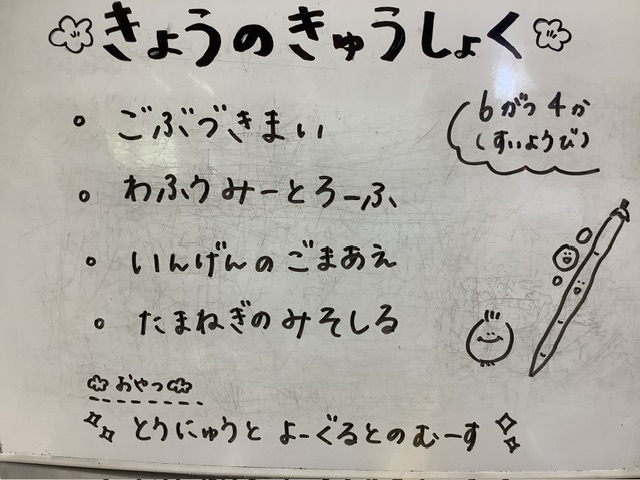 きょうのきゅうしょく
6がつ4か
(すいようび)
ごぶづきまい
わふうみーとろーふ
いんげんのごまあえ
たまねぎのみそしる
おやつ
とうにゅうとよーぐるとのむーす